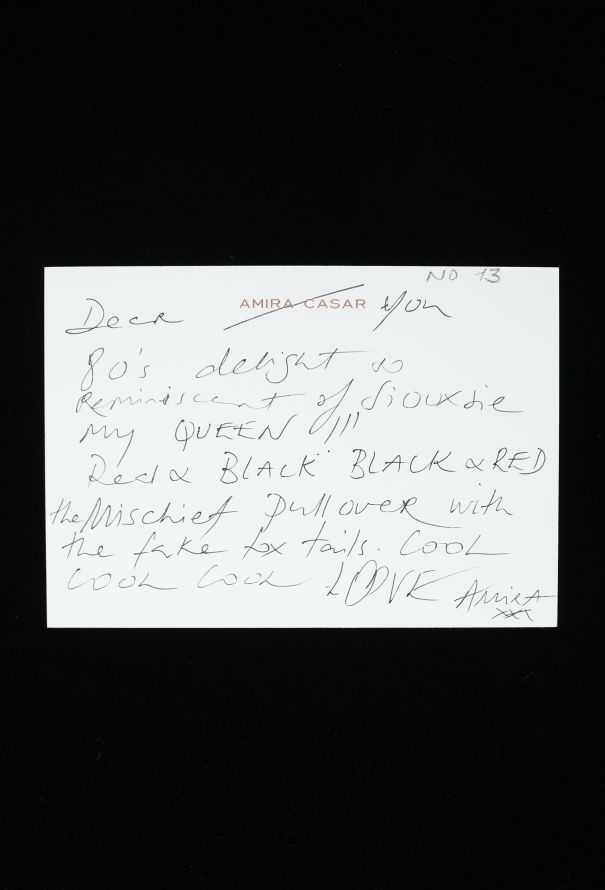 NO 13
AMIRA CASAR
Dear You
80's delight so
Reminiscent of Siouxsie
My QUEEN !!!
Red & BLACK BLACK & RED
the Mischief Pullover with
the fake fox tails. COOL
COOL COOL LOVE Amira
xxx